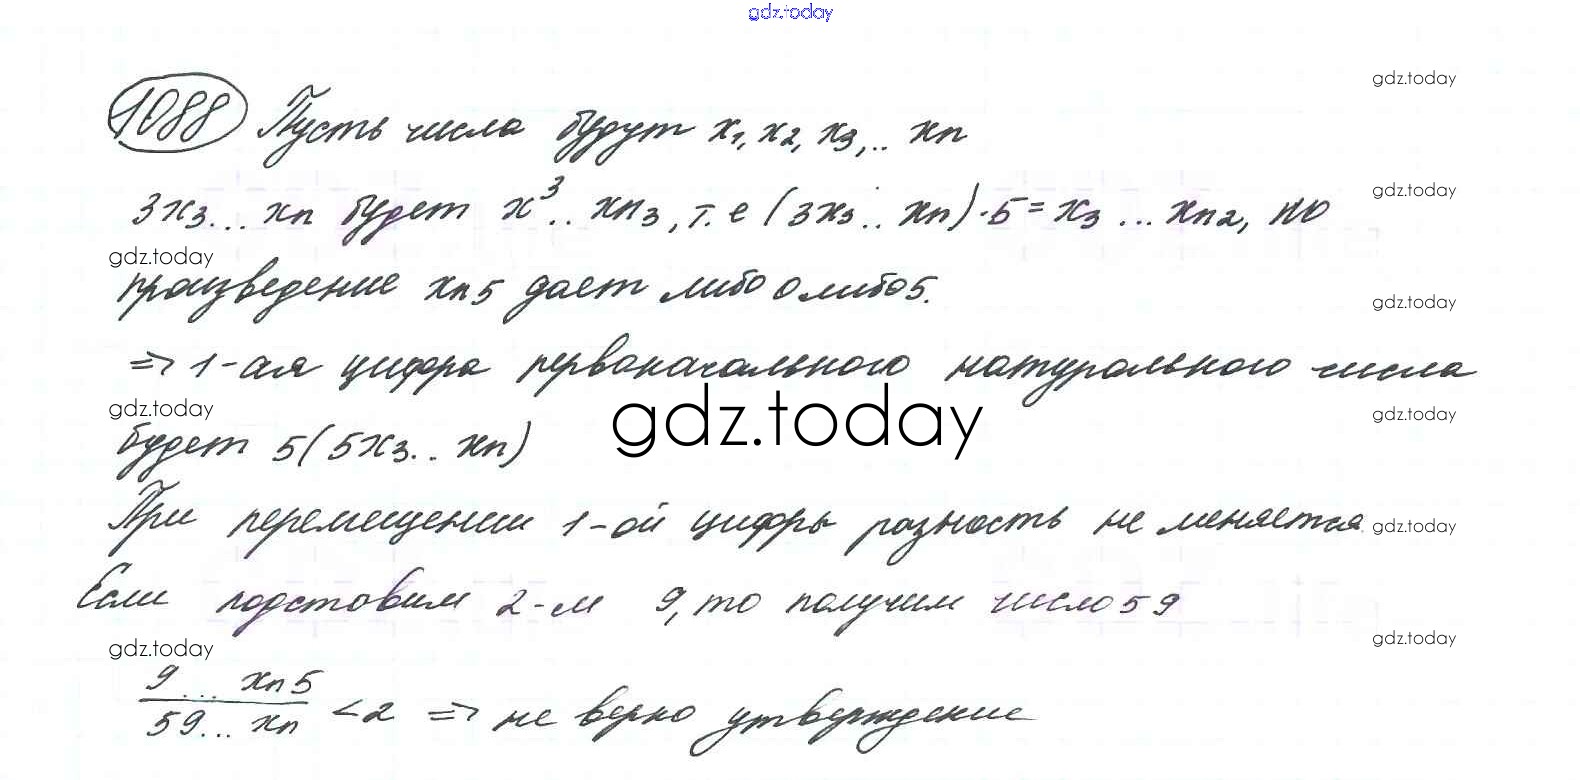 gdz.today
gdz.today
1088 Пусть числа будут x₁, x₂, x₃,.. xn
gdz.today
3x₃... xn будет x³.. xn₃, т.е (3x₃.. xn)·5=x₃ ... xn₂, но
gdz.today
произведение xn5 дает либо 0 либо 5.
gdz.today
=> 1-ая цифра первоначального натурального числа
gdz.today
gdz.today
gdz.today
будет 5(5x₃.. xn)
При перемещении 1-ой цифры разность не меняется
gdz.today
Если подставим 2-м 9, то получим число 59
gdz.today
gdz.today
9... xn5
59... xn
<2 => не верно утверждение